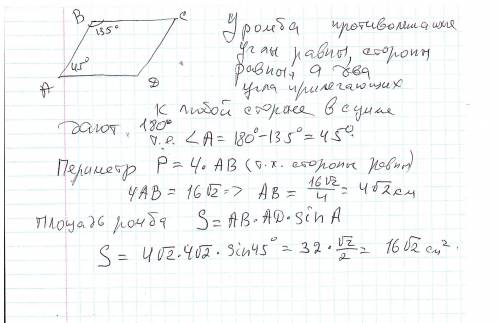 B C
135°
45°
A D
У ромба противолежащие
углы равны, стороны
равны, а два
угла прилегающих
к любой стороне в сумме
дают 180°
т.е. ∠A = 180° - 135° = 45°
Периметр P = 4 · AB (т.к. стороны равны)
4AB = 16√2 => AB = 16√2/4 = 4√2 см
Площадь ромба S = AB · AD · sin A
S = 4√2 · 4√2 · sin 45° = 32 · √2/2 = 16√2 см².